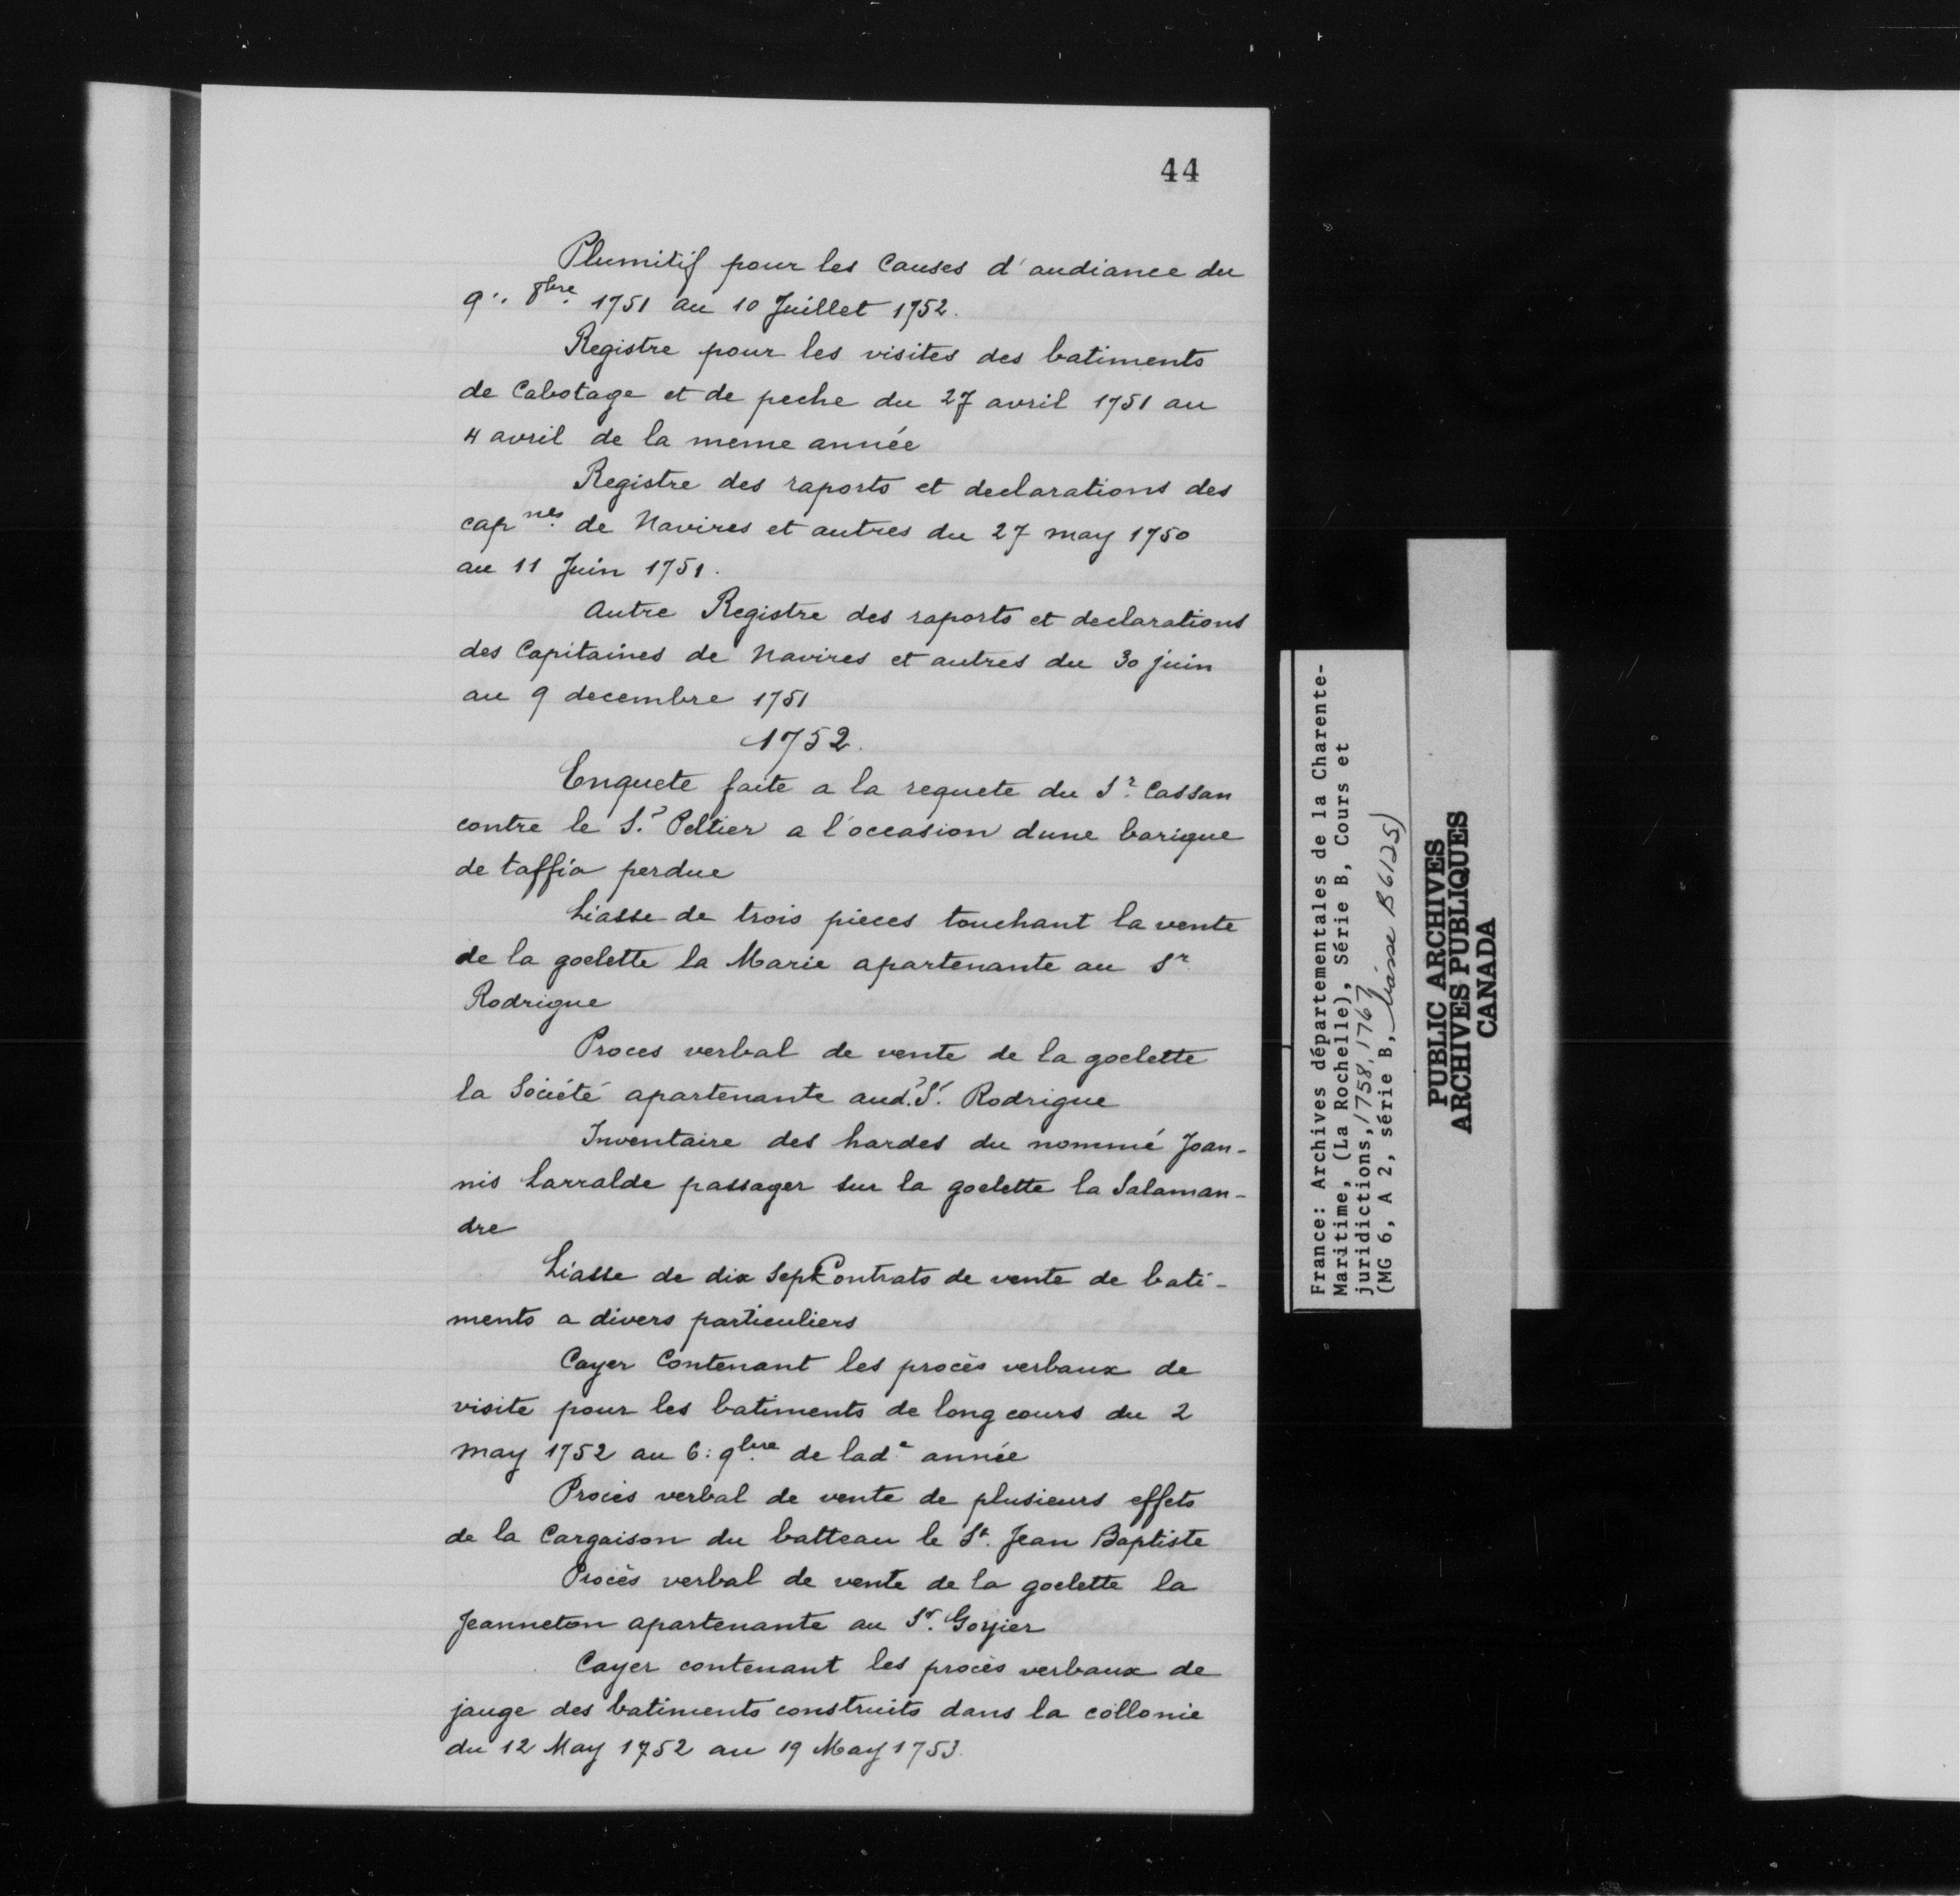 44
Plumitif pour les Causes d'audiance du
9.. 8bre. 1751 au 10 Juillet 1752.
Registre pour les visites des batiments
de Cabotage et de peche du 27 avril 1751 au
4 avril de la meme année
Registre des raports et declarations des
capnes. de Navires et autres du 27 may 1750
au 11 Juin 1751.
Autre Registre des raports et declarations
des Capitaines de Navires et autres du 30 juin
au 9 decembre 1751
1752.
Enquete faite a la requete du Sr. Cassan
contre le Sr. Peltier a l'occasion dune barique
de taffia perdue
Liasse de trois pieces touchant la vente
de la goelette la Marie apartenante au Sr.
Rodrigue
Proces verbal de vente de la goelette
la Société apartenante aud. Sr. Rodrigue
Inventaire des hardes du nommé Joan-
nis Larralde passager sur la goelette la Salaman-
dre
Liasse de dix Sept Contrats de vente de bati-
ments a divers particuliers
Cayer Contenant les procès verbaux de
visite pour les batiments de long cours du 2
may 1752 au 6: 9bre. de lade. année
Procès verbal de vente de plusieurs effets
de la Cargaison du batteau le St. Jean Baptiste
Procès verbal de vente de la goelette la
Jeanneton apartenante au Sr.
Cayer contenant les procès verbaux de
jauge des batiments construits dans la collonie
du 12 May 1752 au 19 May 1753.
France: Archives départementales de la Charente-
Maritime, (La Rochelle), Série B, Cours et
juridictions, 1758, 1767
(MG 6, A 2, série B, liasse B 6125)
PUBLIC ARCHIVES
ARCHIVES PUBLIQUES
CANADA